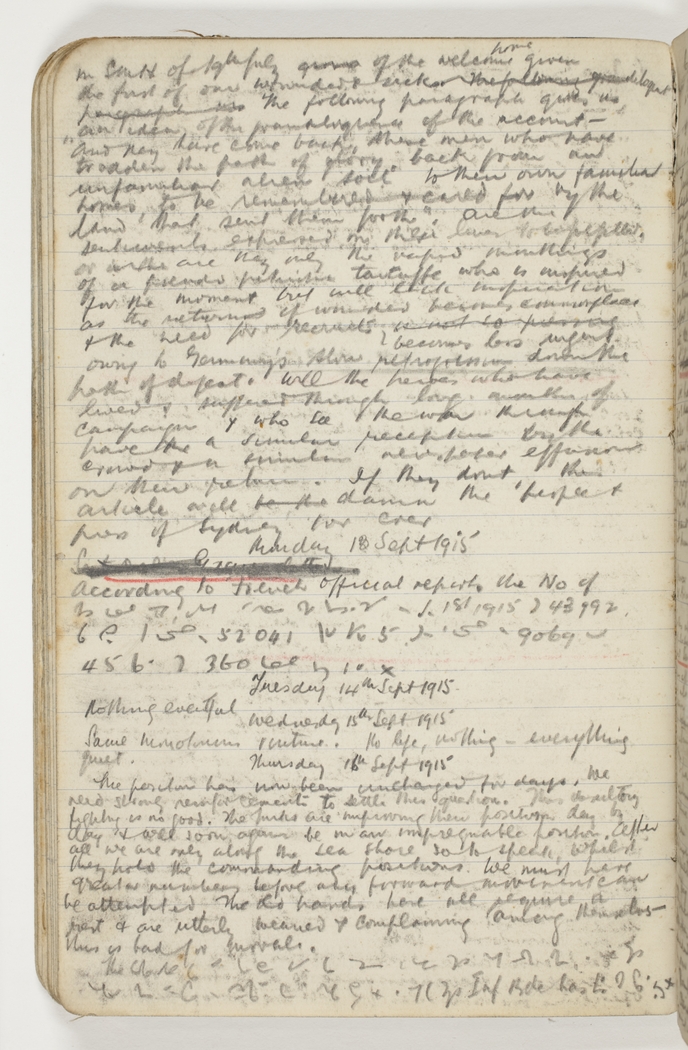 in South of of the welcome home given
the first of our wounded & sick. The following grandiloquent
paragraph The following paragraph gives us
an idea of the grandiloquence of the account —
"And they have come back, these men who have
trodden the path of glory back from an
unfamiliar alien soil to their own familiar
homes to be remembered & cared for by the
land that sent them forth". Are the
sentiments expressed in these lines to be fulfilled,
or are they only the vapid mouthings
of a pseudo patriotic tartuffe who is inspired
for the moment but will lack inspiration
as the returns of wounded becomes commonplace
& the need for recruits is not so pressing
becomes less urgent
owing to Germany's slow retrogression down the
path of defeat. Will the heroes who have
lived & suffered through long months of
campaign & who see the war through
have the a similar reception by the
crowd & a similar newspaper effusion
on their return. If they don't, the
article will be the damn the people &
press of Sydney for ever
Monday 13 Sept 1915
According to French official reports the No of
1st 1915 43992.
52041 5 9069
456. 360
Tuesday 14th Sept 1915.
Nothing eventful
Wednesday 15th Sept 1915
Same monotonous routine. No life, nothing – everything
quiet.
Thursday 16th Sept 1915
The position has now been unchanged for days. We
need strong reinforcements to settle this question. This desultory
fighting is no good. The Turks are improving their position day by
day & will soon again be in an impregnable position. After
all we are only along the sea shore so to speak, whilst
they hold the commanding positions. We must have
greater numbers before any forward movement can
be attempted. The old hands here all require a
rest & are utterly wearied & complaining among themselves –
this is bad for morals.
The
Inf Bde has